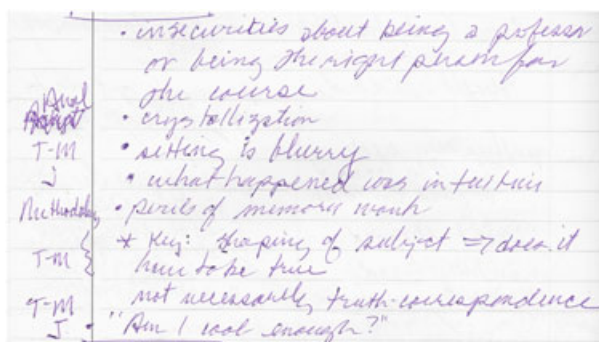 • insecurities about being a professor
or being the right person for
the course
Anal
• crystallization
T-M • setting is blurry
J • what happened was in fusion
Methodology • perils of memory work
* Key: shaping of subject => does it
T-M { have to be true
T-M not necessarily truth-correspondence
J. • "Am I cool enough?"